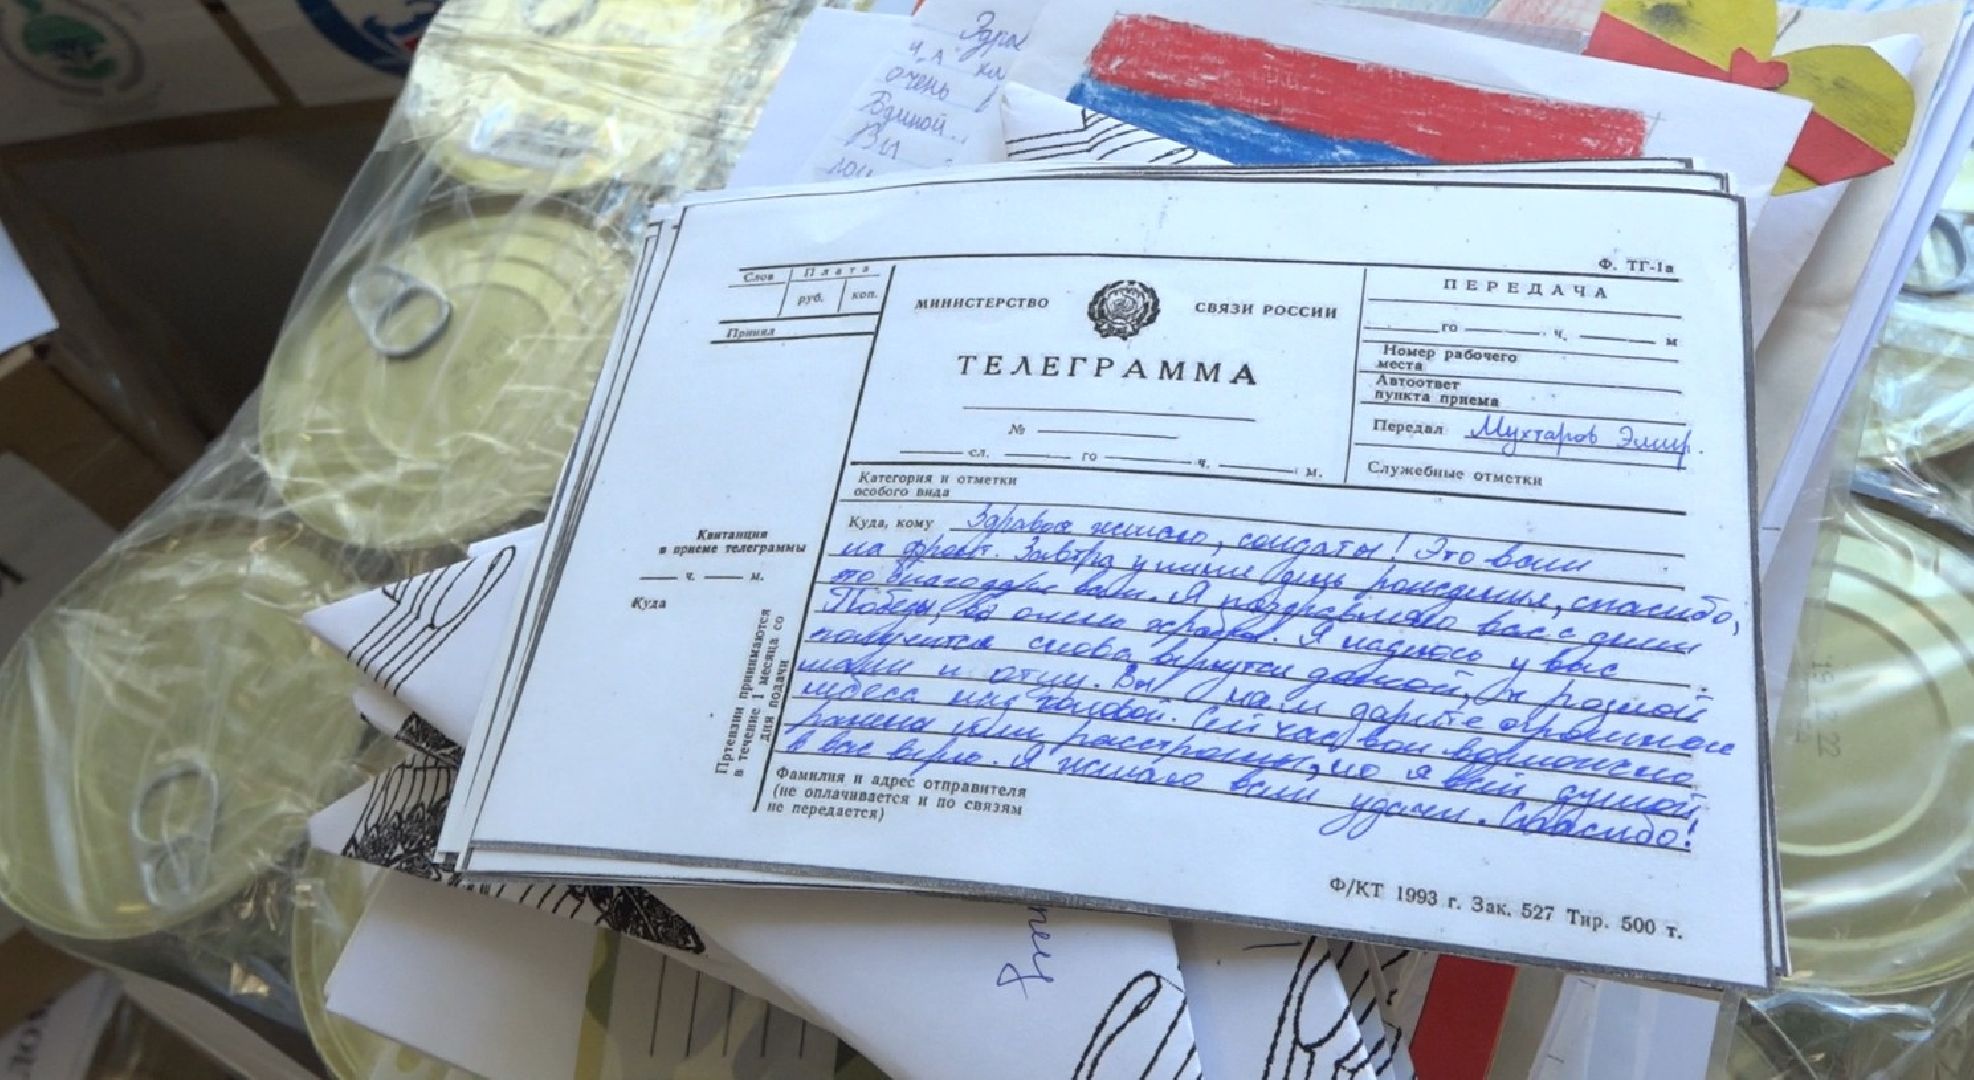 Здрав
очень
Единой
Вы
Ф. ТГ-1а
Слов
Плата
руб.
коп.
Принял
МИНИСТЕРСТВО СВЯЗИ РОССИИ
ТЕЛЕГРАММА
№
сл. го ч. м.
ПЕРЕДАЧА
го ч. м
Номер рабочего
места
Автоответ
пункта приема
Передал Мухтаров Эмир.
Служебные отметки
Категория и отметки
особого вида
Куда, кому Здравия желаю, солдаты! Это вам
на фронт. Завтра у меня день рождения, спасибо,
это благодаря вам. Я поздравляю вас с днем
Победы, вы очень храбры. Я надеюсь у вас
получится снова вернутся домой, к родной
маме и отцу. Вы нам дарите огромное
небеса над головой. Сейчас вы возможно
ранены или расстроены, но я всей душой
в вас верю. Я желаю вам удачи. Спасибо!
Квитанция
в приеме телеграммы
ч. м.
Куда
Претензии принимаются
в течение 1 месяца со
дня подачи
Фамилия и адрес отправителя
(не оплачивается и по связям
не передается)
Ф/КТ 1993 г. Зак. 527 Тир. 500 т.